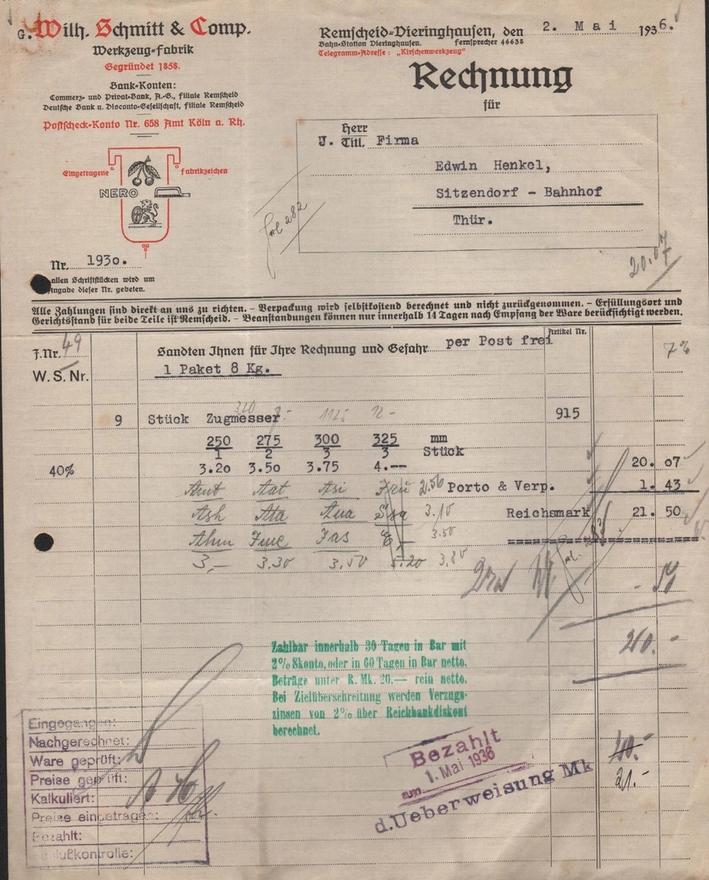 G. Wilh. Schmitt & Comp.
Werkzeug-Fabrik
Gegründet 1858.
Bank-Konten:
Commerz- und Privat-Bank, A.-G., Filiale Remscheid
Deutsche Bank u. Disconto-Gesellschaft, Filiale Remscheid
Postscheck-Konto Nr. 658 Amt Köln a. Rh.
Eingetragene Fabrikzeichen
NERO
Nr. 1930.
allen Schriftstücken wird um
Angabe dieser Nr. gebeten.
Remscheid-Dieringhausen, den 2. Mai 1936.
Bahn-Station Dieringhausen. Fernsprecher 46638
Telegramm-Adresse: „Kirschenwerkzeug"
Rechnung
für
Herr
J. Titl. Firma
Edwin Henkel,
Sitzendorf - Bahnhof
Thür.
20.07
Alle Zahlungen sind direkt an uns zu richten. - Verpackung wird selbstkostend berechnet und nicht zurückgenommen. - Erfüllungsort und
Gerichtsstand für beide Teile ist Remscheid. - Beanstandungen können nur innerhalb 14 Tagen nach Empfang der Ware berücksichtigt werden.
J.Nr. 49
W.S.Nr.
Sandten Ihnen für Ihre Rechnung und Gefahr per Post frei
Artikel Nr.
7%
1 Paket 8 Kg.
9 Stück Zugmesser 915
250 275 300 325 mm
1 2 3 3 Stück
40% 3.20 3.50 3.75 4.-- 20.07
Porto & Verp. 1.43
Reichsmark 21.50
3,- 3.30 3.50
20.-
Zahlbar innerhalb 30 Tagen in Bar mit
2% Skonto, oder in 60 Tagen in Bar netto.
Beträge unter R. Mk. 20.— rein netto.
Bei Zielüberschreitung werden Verzugs-
zinsen von 2% über Reichbankdiskont
berechnet.
Eingegangen:
Nachgerechnet:
Ware geprüft:
Preise geprüft:
Kalkuliert:
Preise eingetragen:
Bezahlt:
Bezahlt
am 1. Mai 1936
d. Ueberweisung Mk
21.-